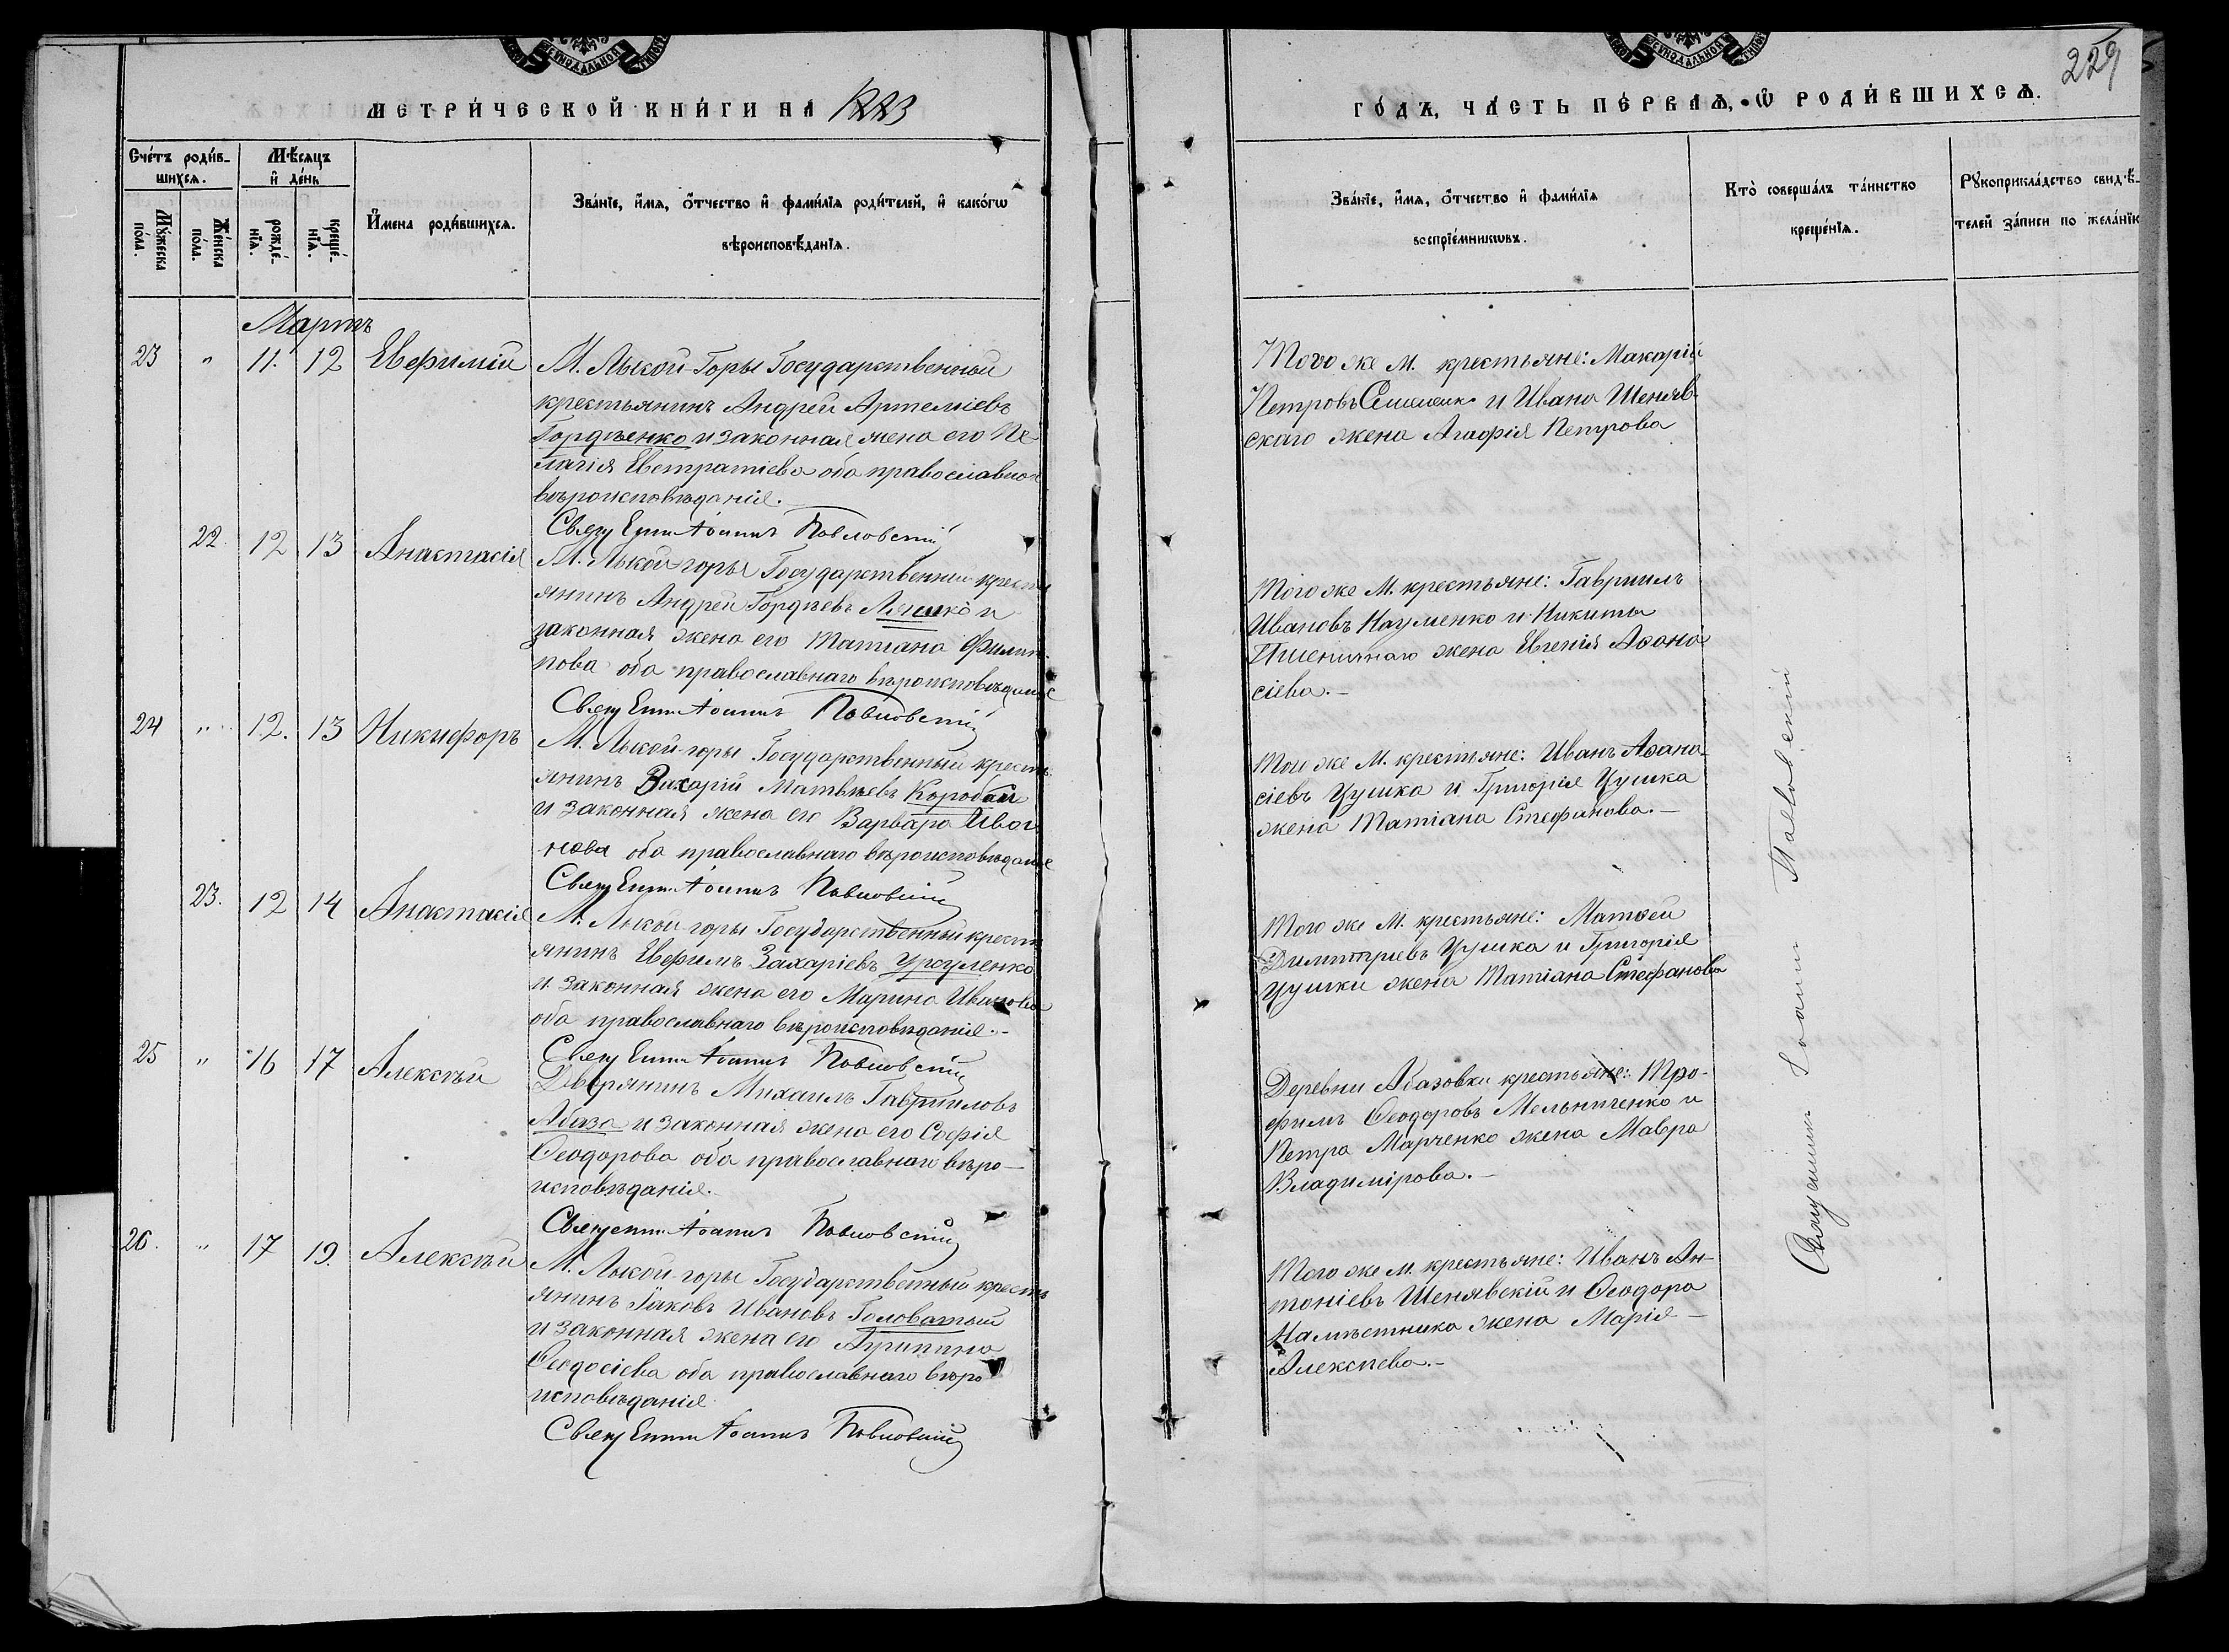 СѴНОДАЛЬНОЙ
СѴНОДАЛЬНОЙ
229
МЕТРИ́ЧЕСКОЙ КНИ́ГИ НА 1883
ГО́ДЪ, ЧА́СТЬ ПЕ́РВАѦ, Ѡ РОДИ́ВШИХСѦ.
Сче́тъ роди́в-
шихсѧ.
Мꙋ́жеска
по́ла.
Же́нска
по́ла.
Мѣ́сѧцъ
и҆ де́нь
рожде́-
нїѧ.
креще́-
нїѧ.
И҆мена роди́вшихсѧ.
Зва́нїе, и҆́мѧ, ѻ҆́тчество и҆ фами́лїѧ роди́телей, и҆ како́гѡ
вѣроисповѣ́данїѧ.
Зва́нїе, и҆́мѧ, ѻ҆́тчество и҆ фами́лїѧ
воспрїе́мникѡвъ.
Кто̀ соверша́лъ та́инство
креще́нїѧ.
Рꙋкоприкла́дство свидѣ́-
телей за́писи по жела́нїю
Мартъ
23 " 11. 12 Евфимій М. Лысой-Горы Государственный
крестьянинъ Андрей Артеміевъ
Гордѣенко и законная жена его Пе-
лагія Евстратіева оба православнаго
вѣроисповѣданія.
Свящ Іоаннъ Павловскій
Того же М. крестьяне: Макарій
Петровъ и Ивана Шеняв-
скаго жена Агафія Петрова
22. 12 13 Анастасія М. Лысой-горы Государственный кресть
янинъ Андрей Гордѣевъ Ляшко и
законная жена его Татіана Филип-
пова оба православнаго вѣроисповѣданія
Свящ Іоаннъ Павловскій
Того же М. крестьяне: Гавріилъ
Ивановъ Науменко и Никиты
Пшеничнаго жена Евгенія Аѳана
сіева.-
24 " 12. 13 Никифоръ М. Лысой-горы Государственный кресть
янинъ Захарій Матвѣевъ Коробка
и законная жена его Варвара Ива-
нова оба православнаго вѣроисповѣданія
Свящ Іоаннъ Павловскій
Того же М. крестьяне: Иванъ Аѳана-
сіевъ Цушка и Григорія Цушка
жена Татіана Стефанова.-
23. 12 14 Анастасія М. Лысой-горы Государственный кресть
янинъ Евфимъ Захаріевъ
и законная жена его Марина Иванова
оба православнаго вѣроисповѣданія.-
Свящ Іоаннъ Павловскій
Того же М. крестьяне: Матѳей
Димитріевъ Цушка и Григорія
Цушки жена Татіана Стефанова
25 " 16 17 Алексѣй Дворянинъ Михаилъ Гавриловъ
Абаза и законная жена его Софія
Ѳеодорова оба православнаго вѣро-
исповѣданія.
Священ Іоаннъ Павловскій
Деревни Абазовки крестьяне: Тро-
фимъ Ѳеодоровъ Мельниченко и
Петра Марченко жена Мавра
Владимірова.-
26. " 17 19. Алексѣй М. Лысой-горы Государственный кресть
янинъ Іаковъ Ивановъ Головатый
и законная жена его Агрипина
Ѳеодосіева оба православнаго вѣро
исповѣданія
Свящ Іоаннъ Павловскій
Того же м. крестьяне: Иванъ Ан-
тоніевъ Шенявскій и Ѳеодора
Намѣстника жена Марія-
Алексѣева.-
Священникъ Іоаннъ Павловскій